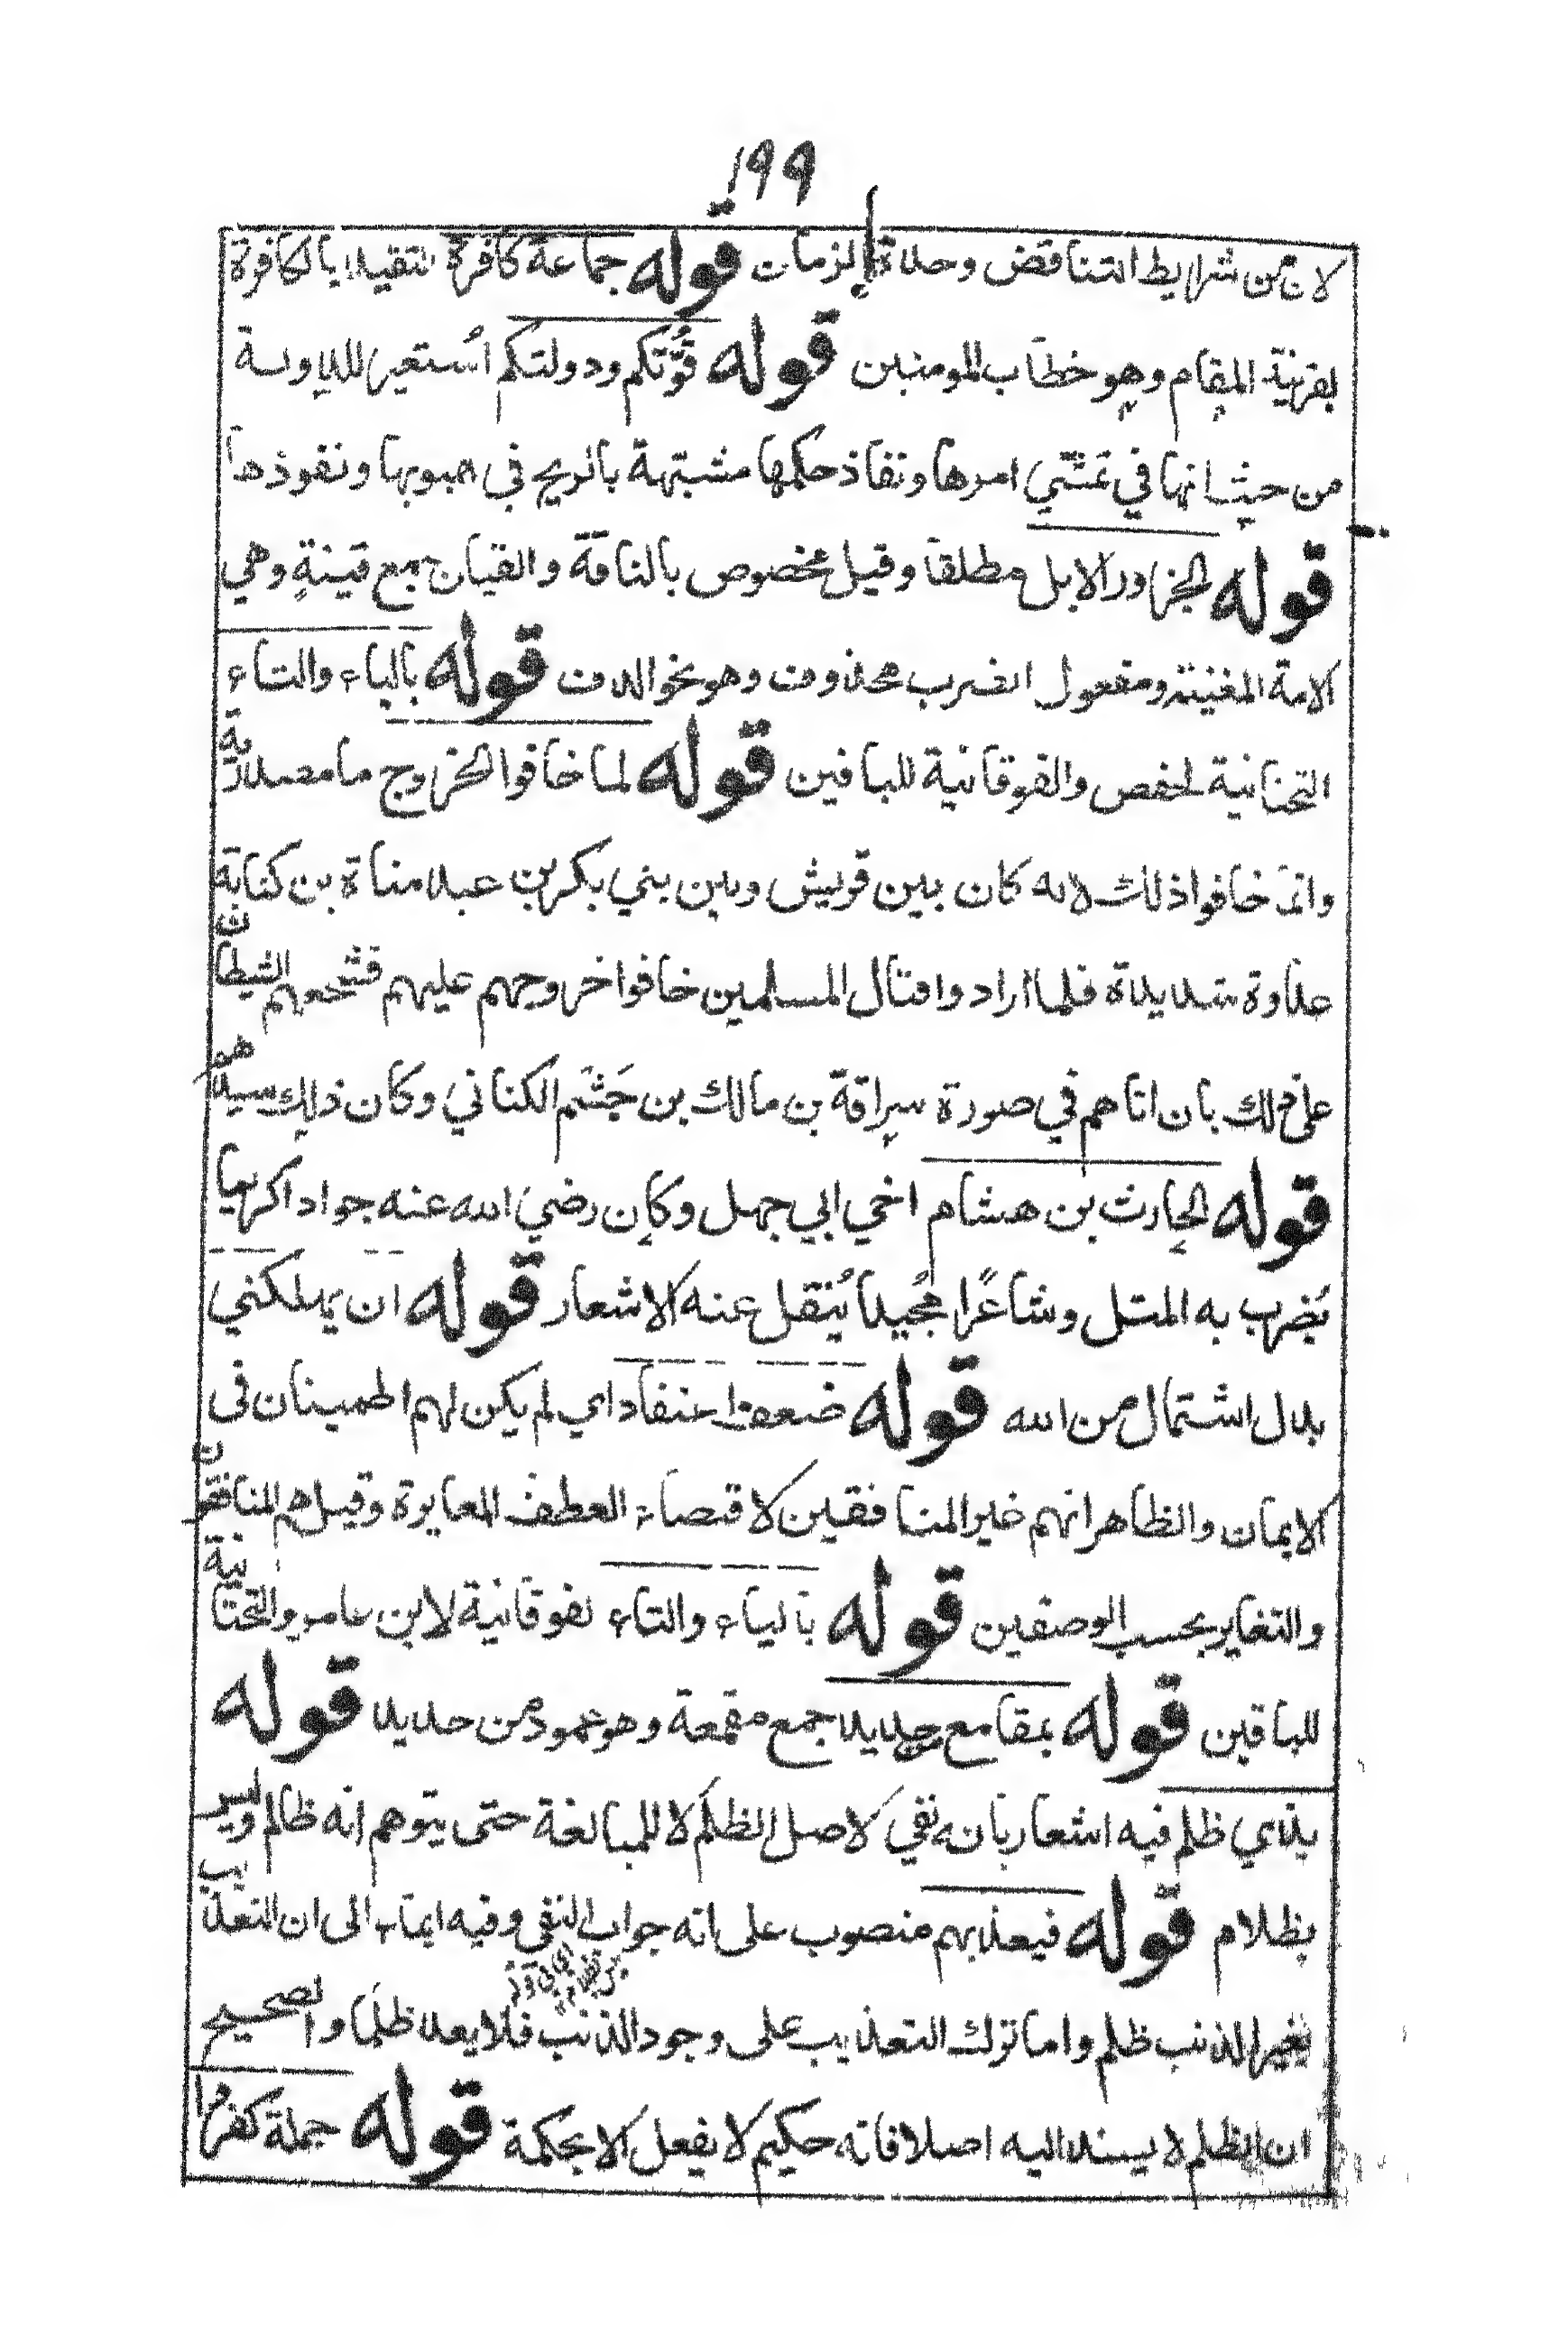 ١٩٩
لان من شرايط التناقض وحدة الزمان قوله جماعة كافرة التقييد بالكافرة
بقرينة المقام وهو خطاب المومنين قوله قُوّتكم ودولتكم اُستعير للدولة
من حيث انها في تمشّي امرها ونفاذ حكمها مشبهة بالريح في هبوبها ونفوذها
قوله الجزاور الابل مطلقا وقيل مخصوص بالناقة والقيان جمع قينةٍ وهي
الامة المغنية ومفعول الضرب محذوف وهو نحو الدف قوله بالياء والتاء
التحتانية لحفص والفوقانية للباقين قوله لما خافوا الخروج ما مصدرية
وانما خافوا ذلك لانه كان بين قريش وبين بني بكر بن عبد مناة بن كنانة
عداوة شديدة فلما ارادوا قتال المسلمين خافوا خروجهم عليهم فشجعهم الشيطان
على ذلك بان اتاهم في صورة سراقة بن مالك بن جَشَم الكناني وكان ذلك سيدهم
قوله الحارث بن هشام اخي ابي جهل وكان رضي الله عنه جوادا كريما
يُضرب به المثل وشاعرًا مُجيدا يُنقل عنه الاشعار قوله ان يملكني
بدل اشتمال من الله قوله ضعف اعتقاد اي لم يكن لهم اطمينان في
الايمان والظاهر انهم غير المنافقين لاقتضاء العطف المغايرة وقيل هم المنافقون
والتغاير بحسب الوصفين قوله بالياء والتاء لفوقانية لابن عامر والتحتانية
للباقين قوله بمقامع حديد جمع مقمعة وهو عمود من حديد قوله
بذي ظلم فيه اشعار بانه نفي لاصل الظلم لا للمبالغة حتى يتوهم انه ظالم وليس
بظلام قوله فيعذبهم منصوب على انه جواب النفي وفيه ايماء الى ان التعذيب
بغير الذنب ظلم واما ترك التعذيب على وجود الذنب فلا يعد ظلما والصحيح
ان الظلم لا يسند اليه اصلا فانه حكيم لا يفعل الا بحكمة قوله جملة كفروا